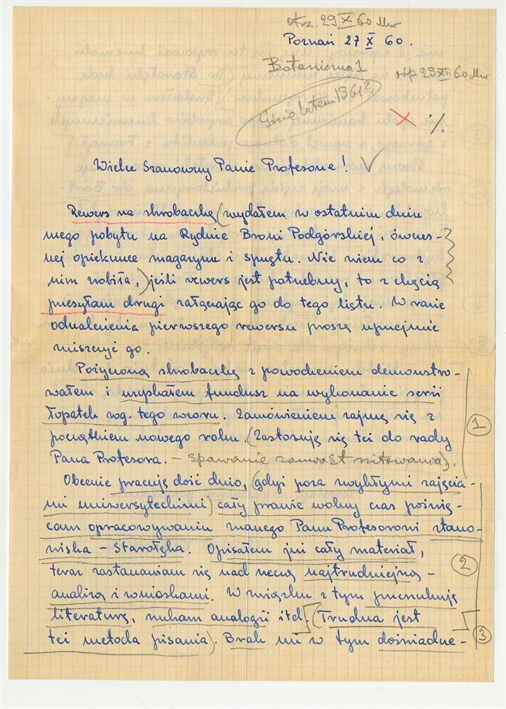 otrz. 29 X 60
Poznań 27 X 60.
Botaniczna 1
odp 29 XII 60
latem 1961?
Wielce Szanowny Panie Profesorze!
Rewers na skrobaczkę (wydałem w ostatnim dniu
mego pobytu na Rydnie Broni Podgórskiej, ówczes-
nej opiekunce magazynu i sprzętu. Nie wiem co z
nim zrobiła,) jeśli rewers jest potrzebny, to z chęcią
przesyłam drugi załączając go do tego listu. W razie
odnalezienia pierwszego rewersu proszę uprzejmie
zniszczyć go.
Pożyczoną skrobaczkę z powodzeniem demonstro-
wałem i uzyskałem fundusz na wykonanie serii
łopatek wg. tego wzoru. Zamówieniem zajmę się z
początkiem nowego roku. (Zastosuję się też do rady
Pana Profesora. – spawanie zamiast nitowania).
1
Obecnie pracuję dość dużo, (gdyż poza zwykłymi zajęcia-
mi uniwersyteckimi) cały prawie wolny czas poświę-
cam opracowywaniu znanego Panu Profesorowi stano-
wiska – Starołęka. Opisałem już cały materiał,
teraz zastanawiam się nad rzeczą najtrudniejszą –
analizą i wnioskami. W związku z tym przeszukuję
2
literaturę, szukam analogii itd. (Trudna jest
też metoda pisania). Brak mi w tym doświadcze-
3